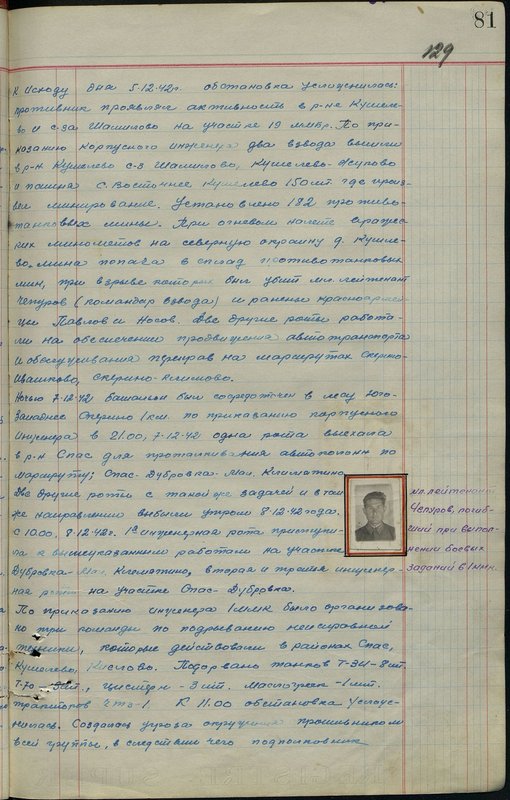 81
129
К исходу дня 5.12.42г. обстановка усложнилась:
противник проявлял активность в р-не Кушле-
во и с-за Шалимово на участке 19 ммбр. По при-
казанию корпусного инженера два взвода вышли
в р-н Кушлево с-з.
и с. Восточнее Кушлево 150 мт. где произ-
вел минирование. Установлено 182 противо-
танковых мины. При огневом налете вражес-
ких минометов на северную окраину д. Кушле-
во. мина попала в склад противотанковых
мин, при взрыве которых был убит мл. лейтенант
Чепуров (командор взвода) и ранены красноармей-
цы Павлов и Носов. Две другие роты работа-
ли на обеспечении продвижения автотранспорта
и обслуживания переправ на маршрутах
Ивашково,
Ночью 7-12-42 батальон был сосредоточен в лесу юго-
западнее 1 км. по приказанию корпусного
инженера в 21.00, 7-12-42 одна рота выехала
в р-н Спас для проталкивания автоколонн по
маршруту; Спас-Дубровка-Мал. Клематино
Две другие роты с такой же задачей и в том
же направлении выбыли утром 8-12-42 года.
С 10.00. 8-12-42г. 1я инженерная рота приступи-
ла к вышеуказанным работам на участке
Дубровка-Мал. Клематино, вторая и третья инженер-
ная роты на участке Спас-Дубровка.
По приказанию инженера 1 ммк было организова-
но три команды по подрыванию неисправной
техники, которые действовали в районах Спас,
Кушлево, Кислово. Подорвано танков Т-34-8 шт.
Т-70- цистерн - 3 шт. - 1 шт.
тракторов ЧТЗ-1. К 11.00 обстановка услож-
нилась. Создалась угроза окружения противником
всей группы, в следствии чего подполковник
мл. лейтенант
Чепуров, погиб-
ший при выпол-
нении боевых
заданий в 1 ммк.